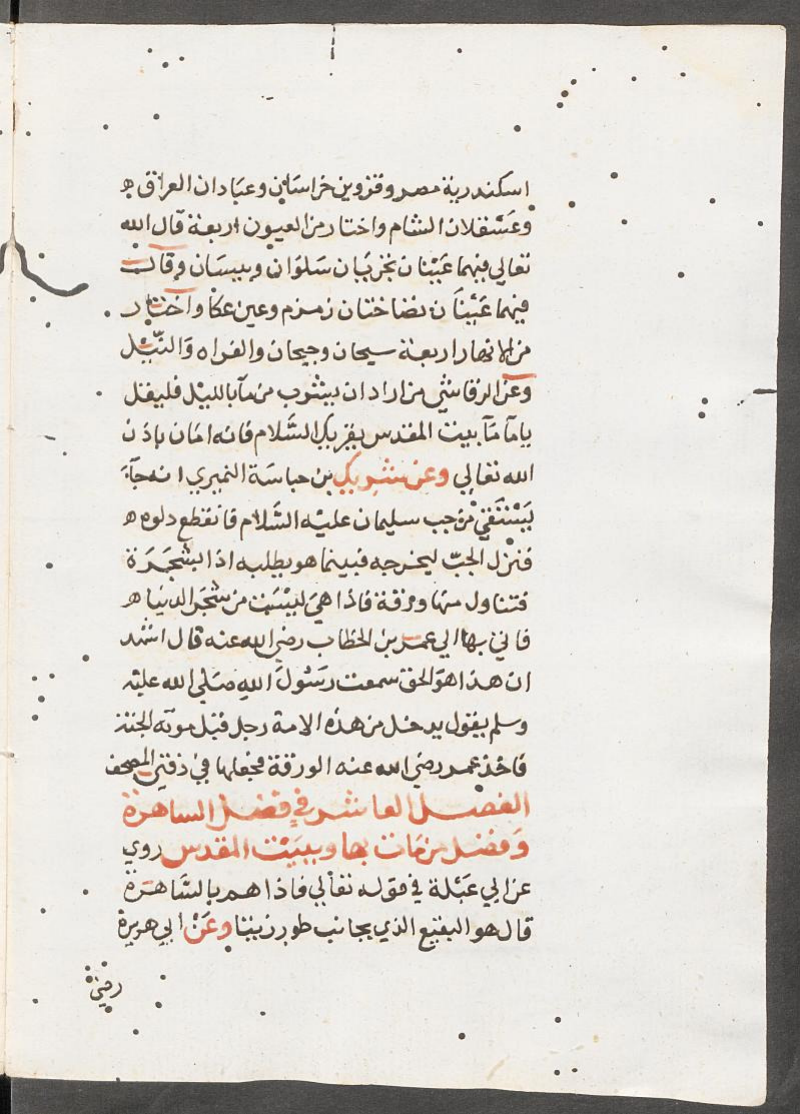 اسكندرية مصر وقزوين خراسان وعبادان العراق ه
وعسقلان الشام واختار من العيون اربعة قال الله
تعالي فيهما عينان تجريان سلوان وبيسان وقالت
فيهما عينان نضاختان زمزم وعين عكا واختار
من الانهار اربعة سيحان وجيحان والفراه والنيل
وعن الرقاشي من اراد ان يشوب من مآ بالليل فليقل
يامآ مآ بيت المقدس يقريك السلام فانه امان باذن
الله تعالي وعن شريك بن حباسة النميري انه جآء
يستقي من جب سليمان عليه السلام فانقطع دلوه ه
فنزل الجب ليخرجه فبينما هو يطلبه اذا بشجرة
فتناول منها ورقة فاذا هي ليست من شجر الدنيا ه
فاتي بها الي عمر بن الخطاب رضي الله عنه قال اشهد
ان هذا هو الحق سمعت رسول الله صلي الله عليه
وسلم يقول يدخل من هذه الامة رجل قبل موته الجنة
فاخذ عمر رضي الله عنه الورقة فجعلها في دفتي المصحف
الفصل العاشر في فضل الساهرة
وفضل من مات بها وببيت المقدس روي
عن ابي عبلة في قوله تعالي فاذا هم بالساهرة
قال هو البقيع الذي بجانب طور زيتا وعن ابي هريرة
رضي